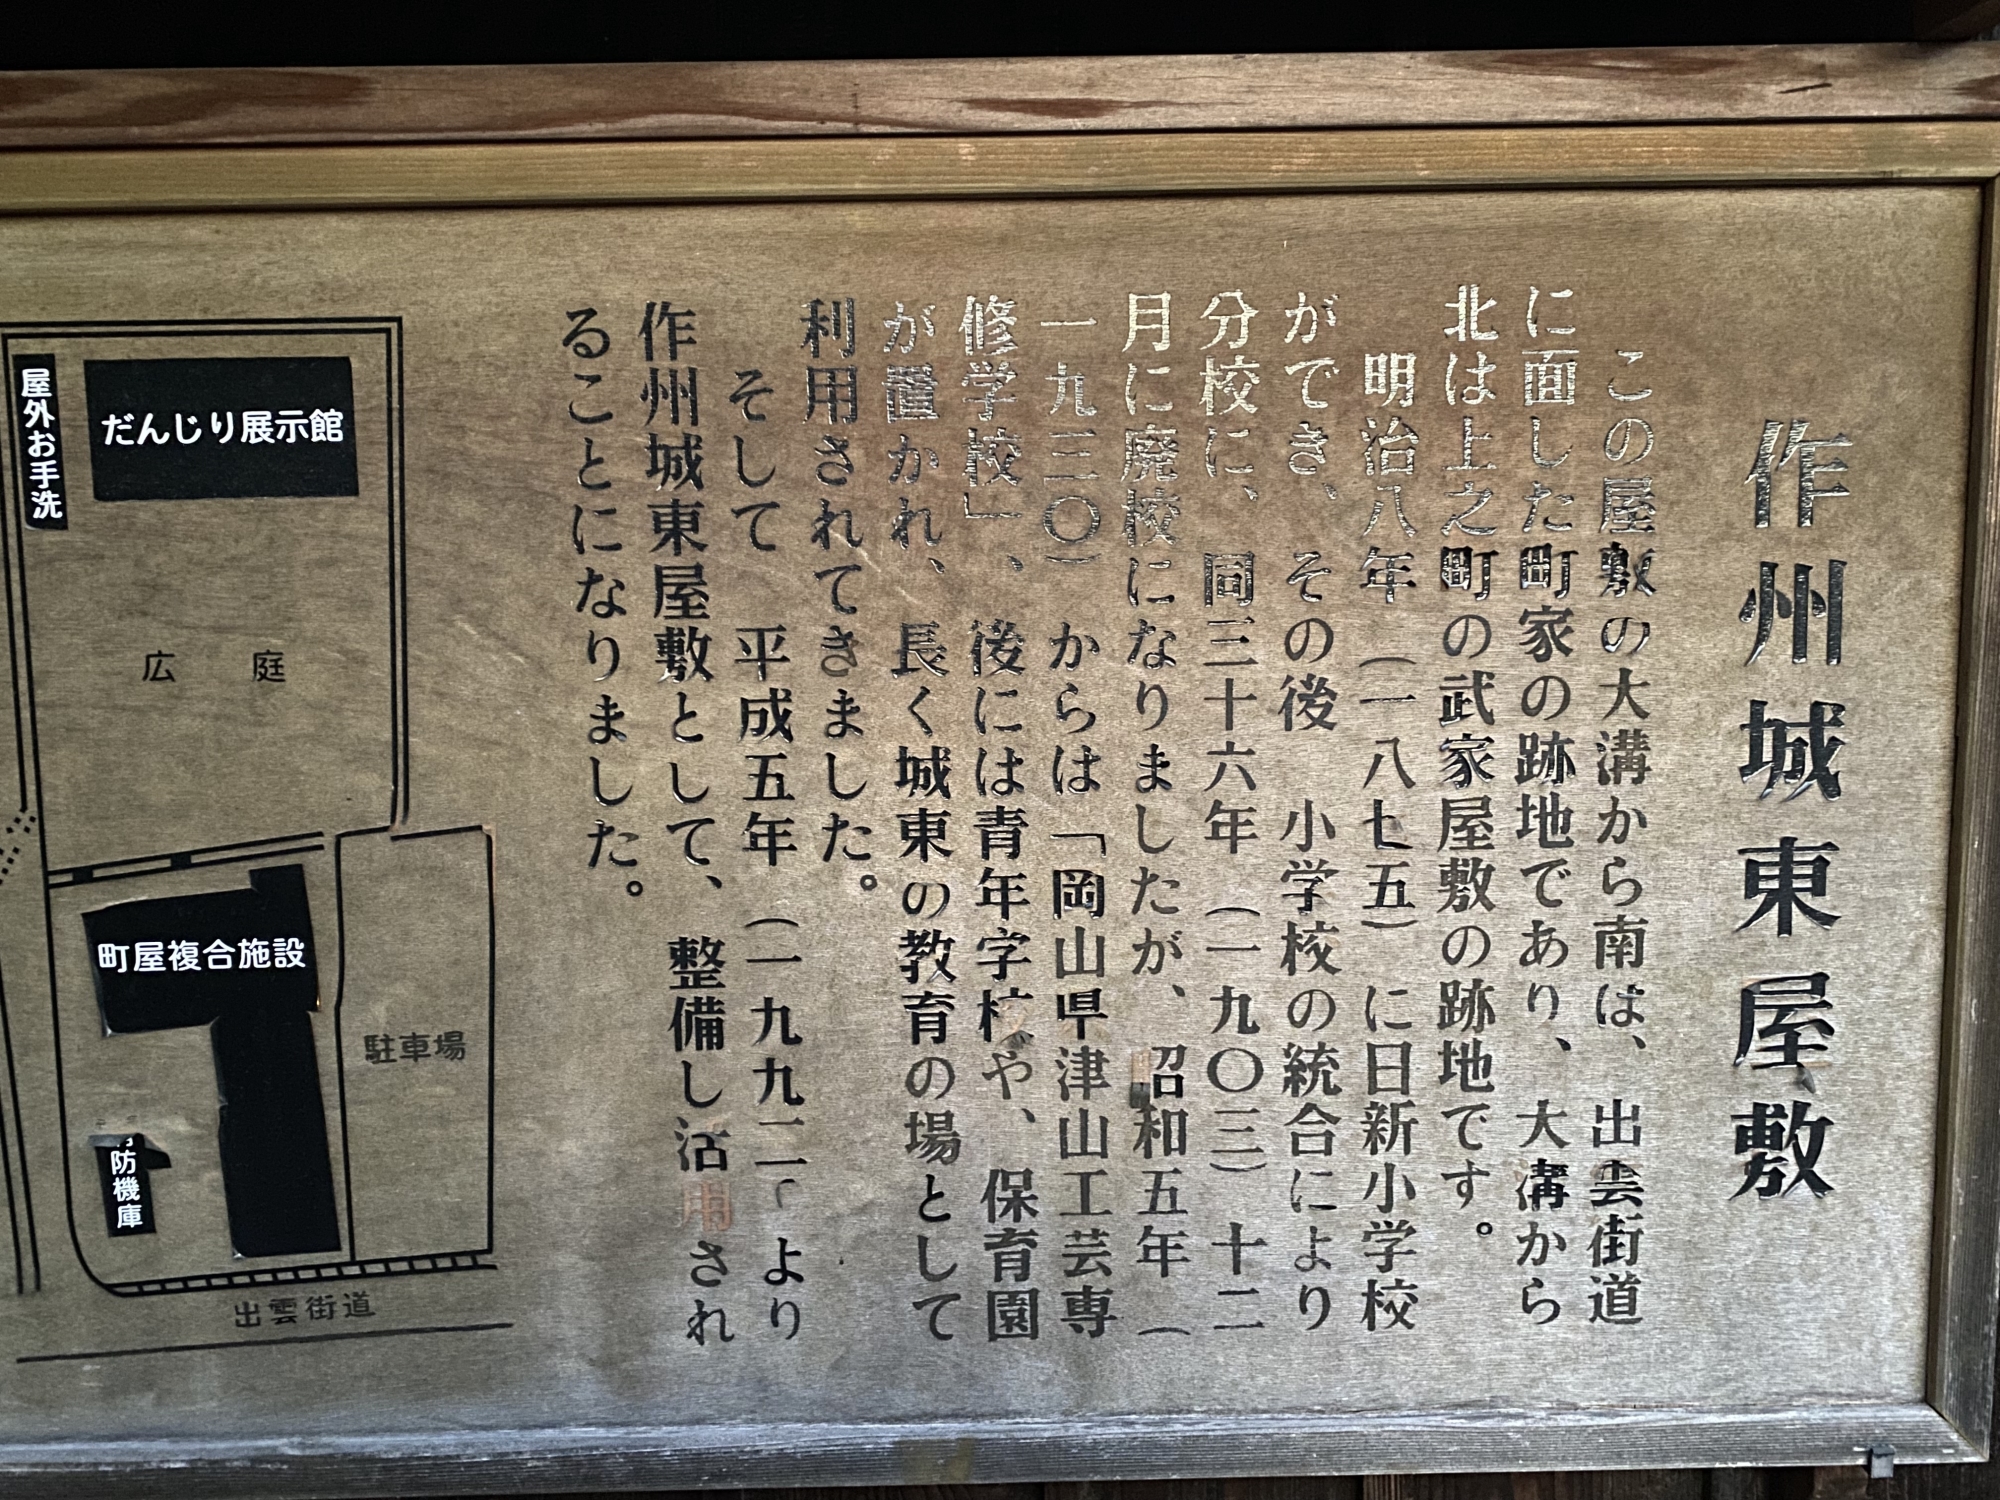 作州城東屋敷
この屋敷の大溝から南は、出雲街道
に面した町家の跡地であり、大溝から
北は上之町の武家屋敷の跡地です。
明治八年(一八七五)に日新小学校
ができ、その後 小学校の統合により
分校に、同三十六年(一九〇三)十二
月に廃校になりましたが、昭和五年(
一九三〇)からは「岡山県津山工芸専
修学校」、後には青年学校や、保育園
が置かれ、長く城東の教育の場として
利用されてきました。
そして 平成五年(一九九二)より
作州城東屋敷として、整備し活用され
ることになりました。
だんじり展示館
屋外お手洗
広庭
町屋複合施設
駐車場
防機庫
出雲街道